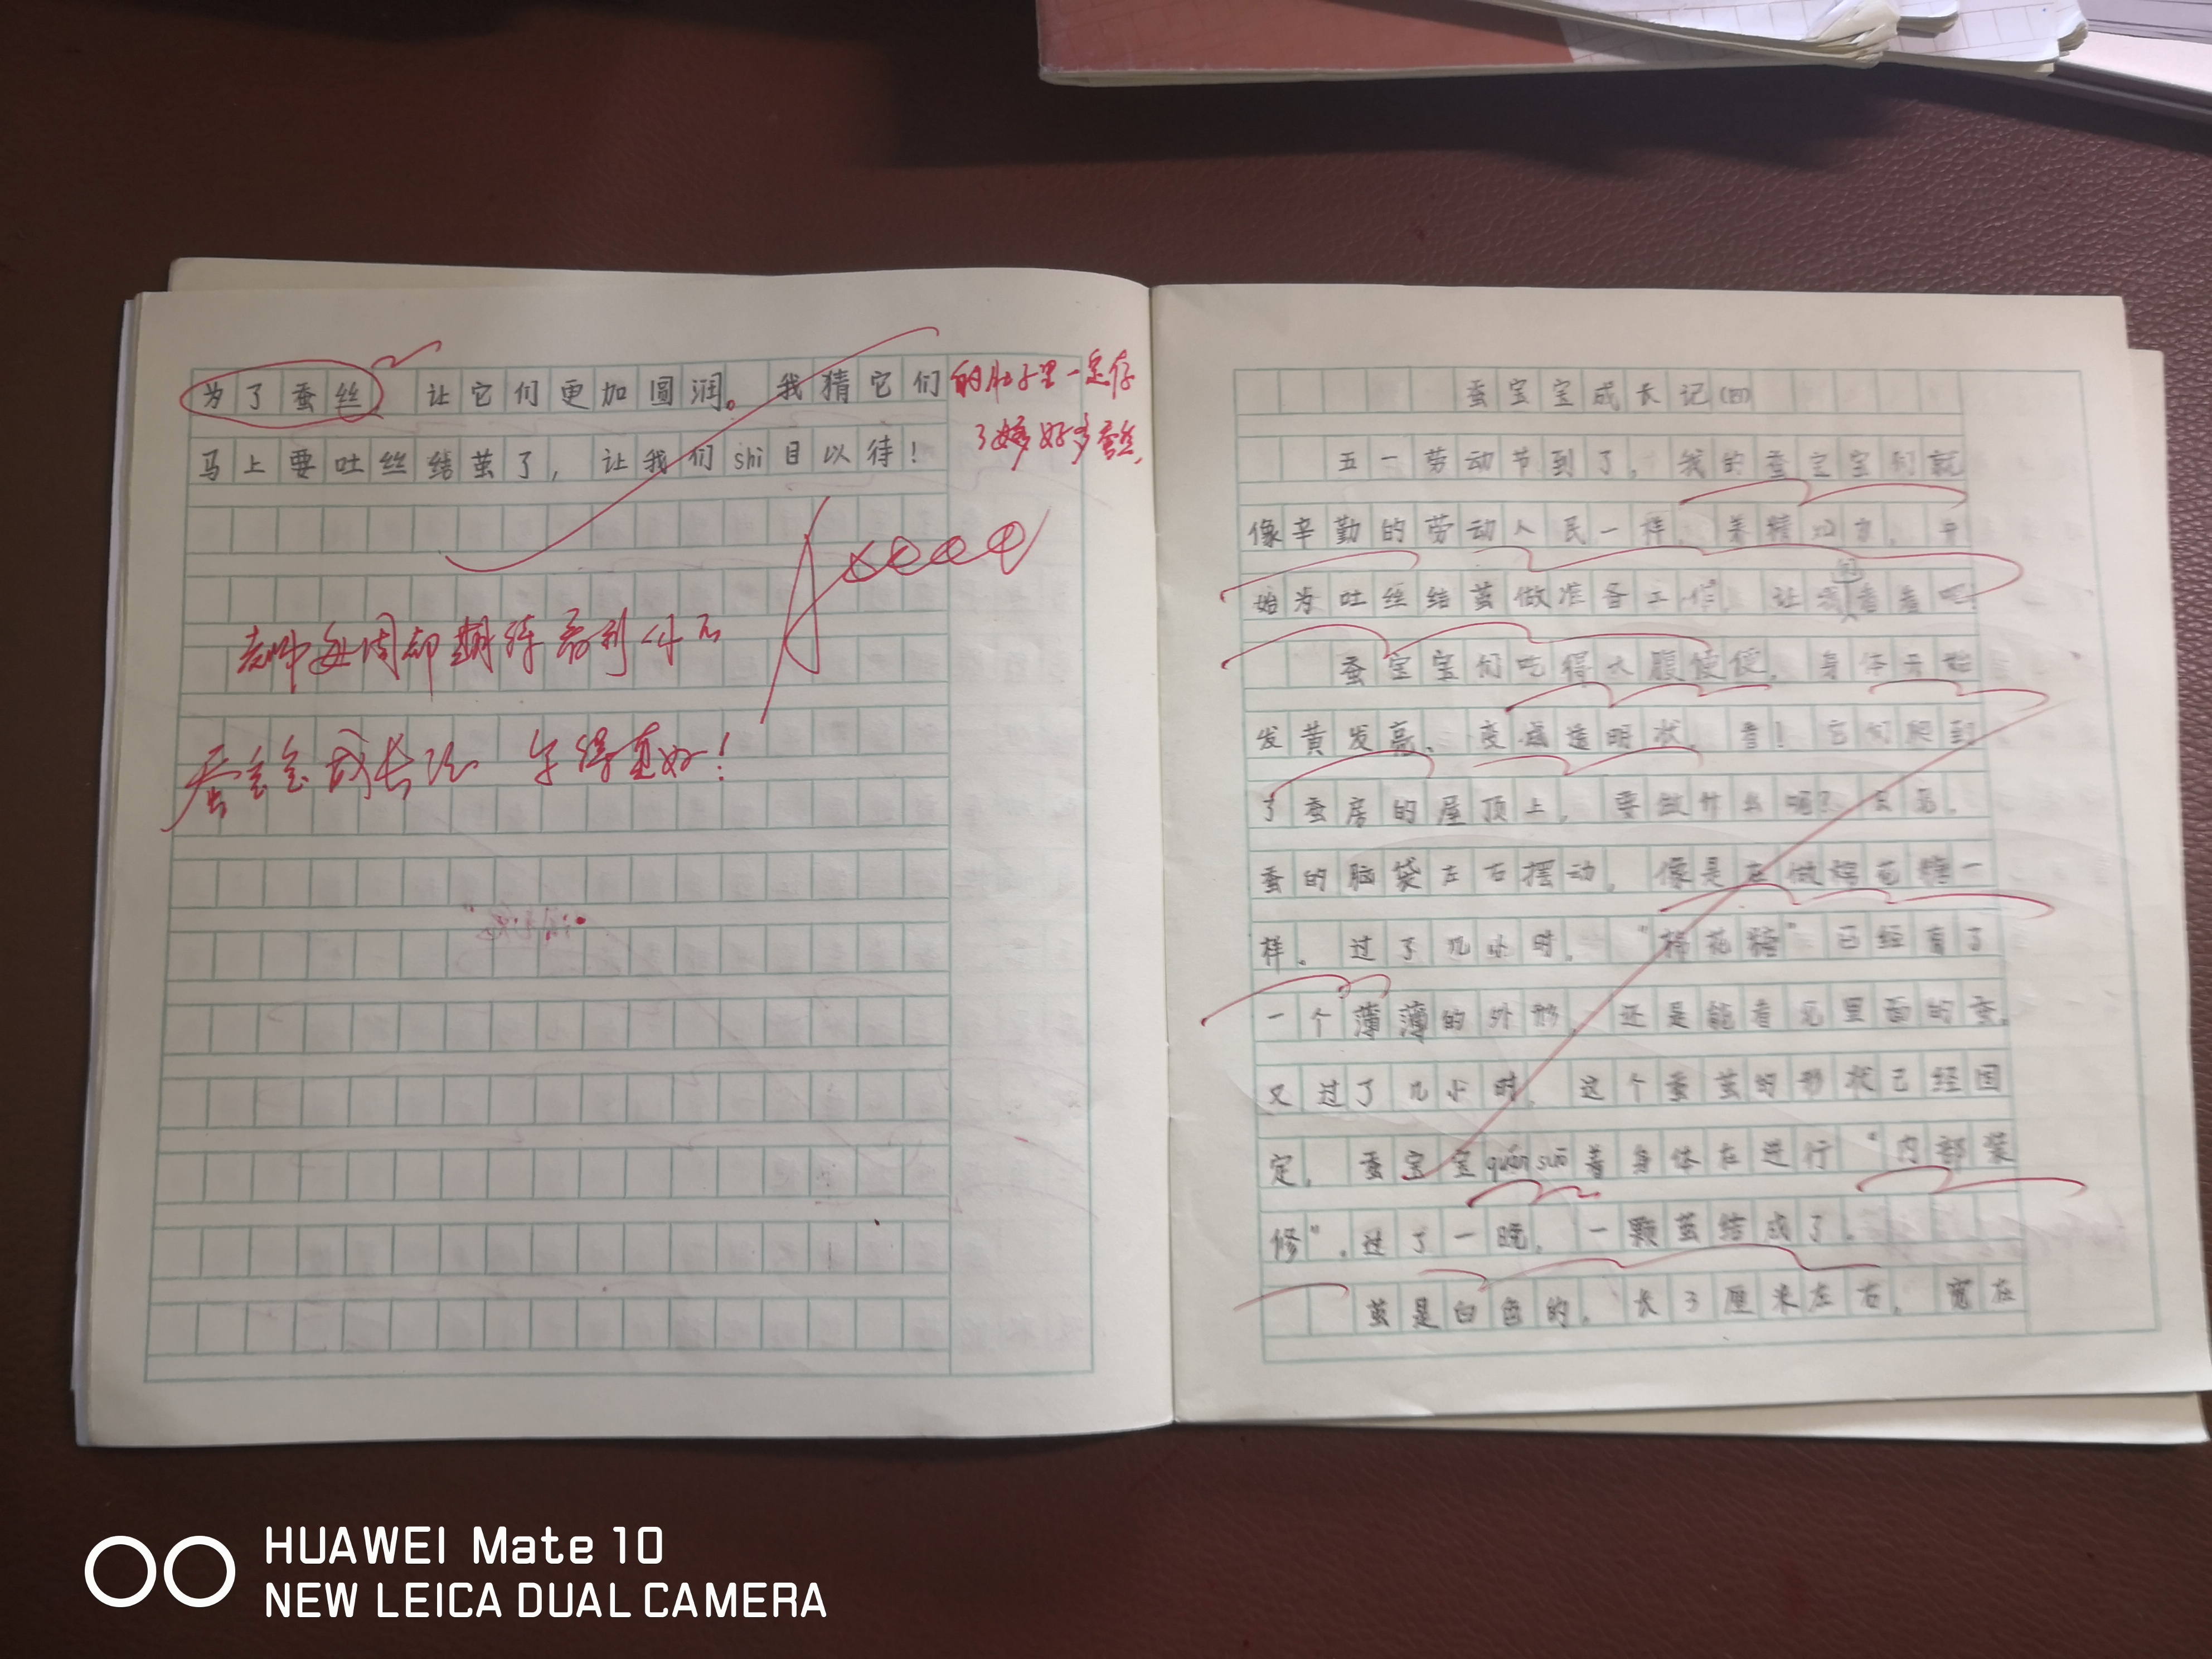 为了蚕丝 让它们更加圆润。我猜它们的肚子里一定存
了好多好多蚕丝,
马上要吐丝结茧了,让我们shi目以待!
老师每周都期待看到你的
蚕宝宝成长记 写得真好!
蚕宝宝成长记(四)
五一劳动节到了,我的蚕宝宝们就
像辛勤的劳动人民一样,养精蓄力,开
始为吐丝结茧做准备工作,让我们看看吧
蚕宝宝们吃得大腹便便,身体开始
发黄发亮,变成透明状,看!它们爬到
了蚕房的屋顶上,要做什么呢?只见,
蚕的脑袋左右摆动,像是在做棉花糖一
样。过了几小时,“棉花糖”已经有了
一个薄薄的外形,还是能看见里面的蚕。
又过了几小时,这个蚕茧的形状已经固
定,蚕宝宝quán suō着身体在进行“内部装
修”。过了一晚,一颗茧结成了。
茧是白色的,长3厘米左右,宽在
HUAWEI Mate 10
NEW LEICA DUAL CAMERA